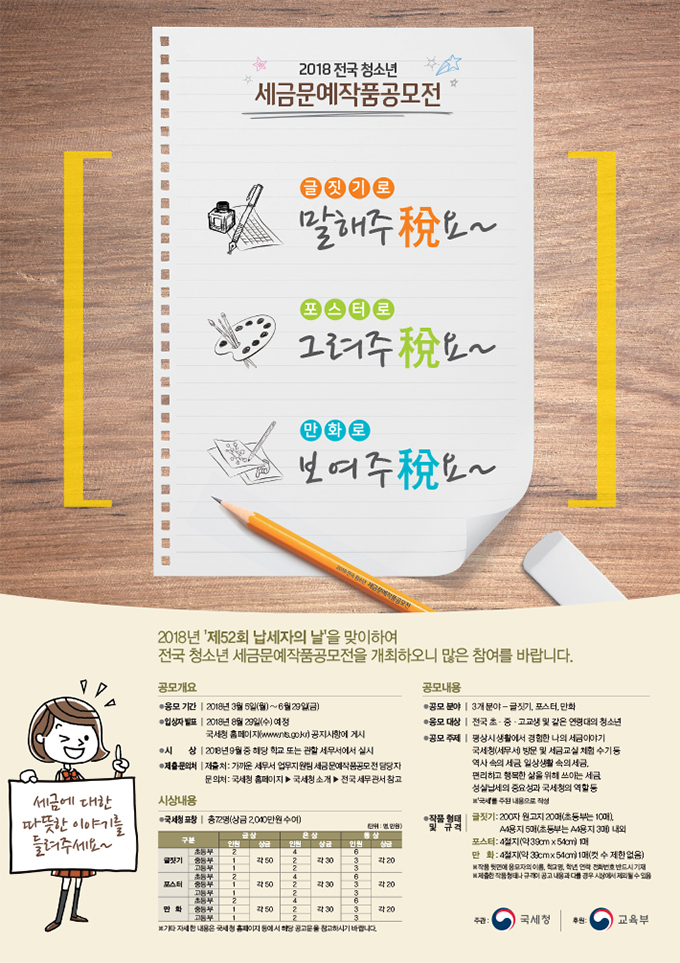 2018 전국 청소년
세금문예작품공모전
글짓기로
말해주稅요~
포스터로
그려주稅요~
만화로
보여주稅요~
2018 전국 청소년 세금문예작품공모전
2018년 '제52회 납세자의 날'을 맞이하여
전국 청소년 세금문예작품공모전을 개최하오니 많은 참여를 바랍니다.
공모개요
●응모 기간 | 2018년 3월 5일(월) ~ 6월 29일(금)
●입상자발표 | 2018년 8월 29일(수) 예정
국세청 홈페이지(www.nts.go.kr) 공지사항에 게시
●시 상 | 2018년 9월 중 해당 학교 또는 관할 세무서에서 실시
●제출·문의처 | 제출처 : 가까운 세무서 업무지원팀 세금문예작품공모전 담당자
문의처 : 국세청 홈페이지 ▶ 국세청 소개 ▶ 전국 세무관서 참고
시상내용
●국세청 표창 | 총 72명(상금 2,040만원 수여)
(단위 : 명, 만원)
구분 금 상 은 상 동 상
인원 상금 인원 상금 인원 상금
글짓기 초등부 2 각 50 4 각 30 6 각 20
중등부 1 2 3
고등부 1 2 3
포스터 초등부 2 각 50 4 각 30 6 각 20
중등부 1 2 3
고등부 1 2 3
만 화 초등부 2 각 50 4 각 30 6 각 20
중등부 1 2 3
고등부 1 2 3
※기타 자세한 내용은 국세청 홈페이지 등에서 해당 공고문을 참고하시기 바랍니다.
공모내용
●공모 분야 | 3개 분야 - 글짓기, 포스터, 만화
●응모 대상 | 전국 초·중·고교생 및 같은 연령대의 청소년
●공모 주제 | 평상시 생활에서 경험한 나의 세금이야기
국세청(세무서) 방문 및 세금교실 체험 수기 등
역사 속의 세금, 일상생활 속의 세금,
편리하고 행복한 삶을 위해 쓰이는 세금,
성실납세의 중요성과 국세청의 역할 등
※'국세'를 주된 내용으로 작성
●작품 형태 및 규격 | 글짓기 : 200자 원고지 20매(초등부는 10매),
A4용지 5매(초등부는 A4용지 3매) 내외
포스터 : 4절지(약 39cm x 54cm) 1매
만 화 : 4절지(약 39cm x 54cm) 1매(컷 수 제한 없음)
※작품 뒷면에 응모자의 이름, 학교명, 학년·연락 전화번호 반드시 기재
※제출한 작품형태나 규격이 공고 내용과 다를 경우 시상에서 제외될 수 있음
세금에 대한
따뜻한 이야기를
들려주세요~
주관 : 국세청 후원 : 교육부